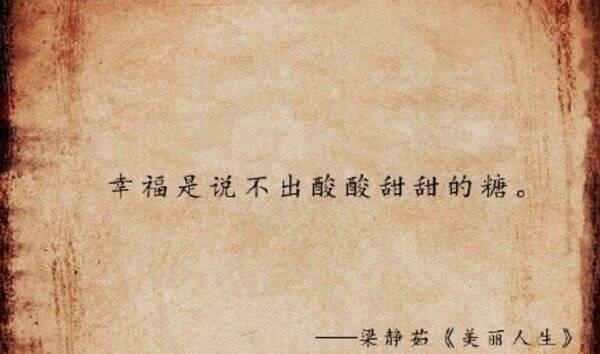 幸福是说不出酸酸甜甜的糖。
——梁静茹《美丽人生》